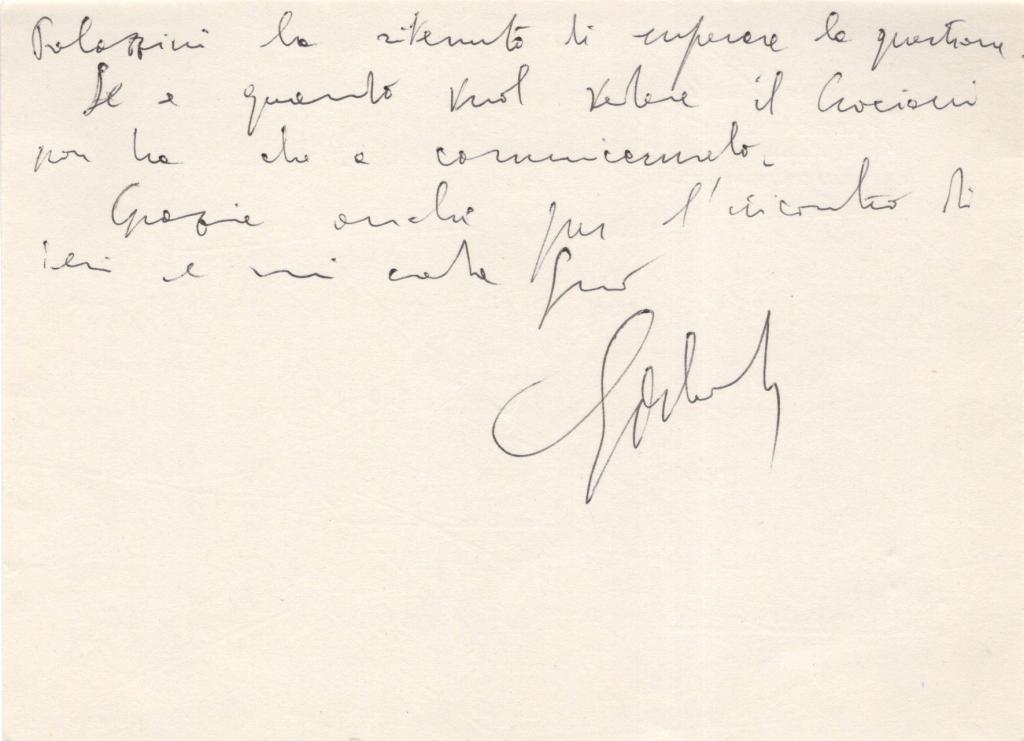 Palazzini ha ritenuto di superare la questione.
Se e quando vuol vedere il Crociani
non ha che a comunicarmelo.
Grazie anche per l'incontro di
ieri e mi creda Suo